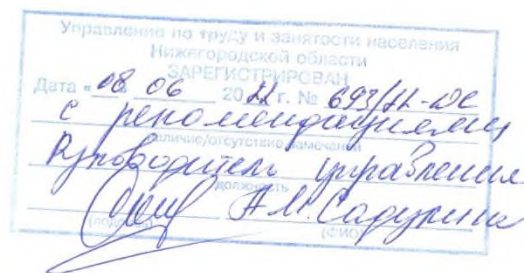 Управление по труду и занятости населения
Нижегородской области
ЗАРЕГИСТРИРОВАН
Дата « 08 06 2022 г. № 693/22-ОС
с рекомендациями
наличие/отсутствие замечаний
Руководитель управления
должность
А.М. Садулина
(подпись) (ФИО)